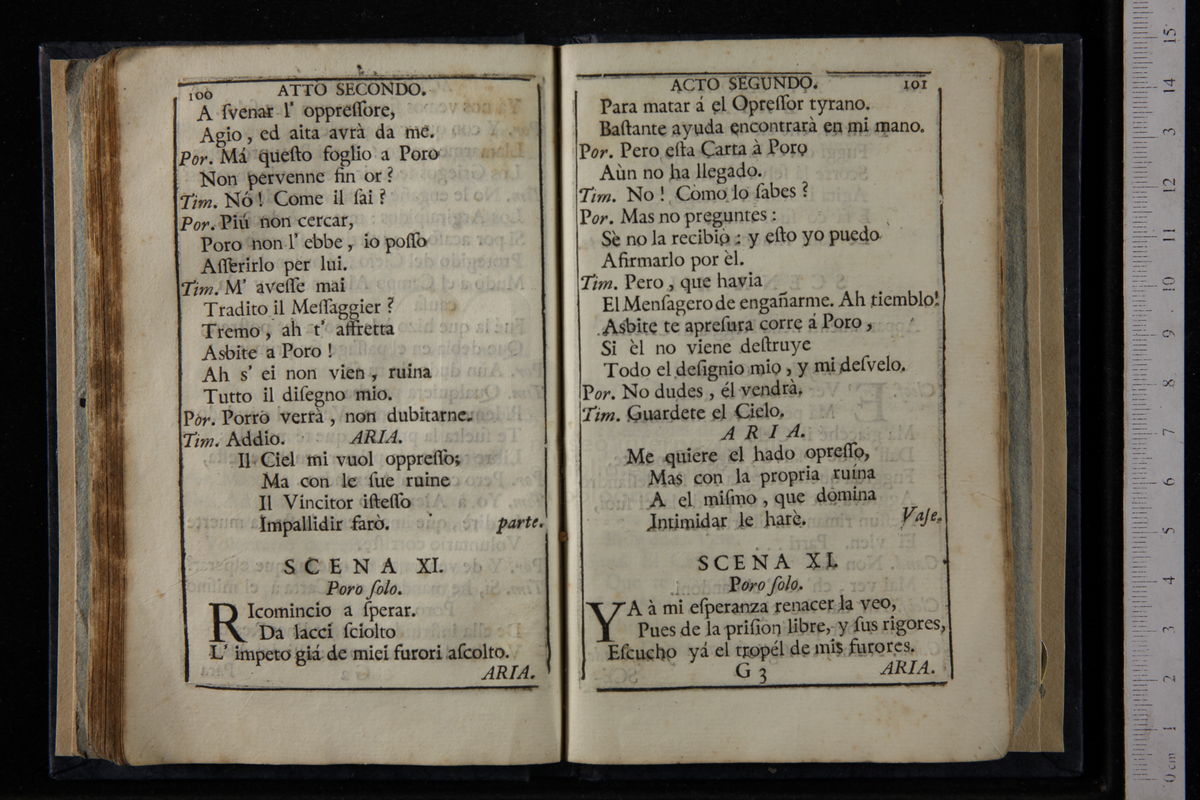 100 ATTO SECONDO.
A ſvenar l' oppreſſore,
Agio, ed aita avrà da me.
Por. Má queſto foglio a Poro
Non pervenne fin or?
Tim. Nó! Come il ſai?
Por. Piú non cercar,
Poro non l' ebbe, io poſſo
Aſſerirlo per lui.
Tim. M' aveſſe mai
Tradito il Meſſaggier?
Tremo, ah t' affretta
Asbite a Poro!
Ah s' ei non vien, ruina
Tutto il diſegno mio.
Pòr. Porro verrà, non dubitarne.
Tim. Addio. ARIA.
Il Ciel mi vuol oppreſſo;
Ma con le ſue ruine
Il Vincitor iſteſſo
Impallidir farò. parte.
SCENA XI.
Poro ſolo.
RIcomincio a ſperar.
Da lacci ſciolto
L' impeto giá de miei furori aſcolto.
ARIA.
ACTO SEGUNDO. 101
Para matar á el Opreſſor tyrano.
Baſtante ayuda encontrarà en mi mano.
Por. Pero eſta Carta à Poro
Aùn no ha llegado.
Tim. No! Còmo lo ſabes?
Por. Mas no preguntes:
Sè no la recibiò: y eſto yo puedo
Afirmarlo por èl.
Tim. Pero, que havia
El Menſagero de engañarme. Ah tiemblo!
Asbite te apreſura corre á Poro,
Si èl no viene deſtruye
Todo el deſignio mio, y mi deſvelo.
Por. No dudes, él vendrà.
Tim. Guardete el Cielo.
ARIA.
Me quiere el hado opreſſo,
Mas con la propria ruina
A el miſmo, que domina
Intimidar le harè. Vaſe.
SCENA XI.
Poro ſolo.
YA à mi eſperanza renacer la veo,
Pues de la priſion libre, y ſus rigores,
Eſcucho yá el tropél de mis furores.
G 3 ARIA.
15
14
13
12
11
10
9
8
7
6
5
4
3
2
1
0 cm